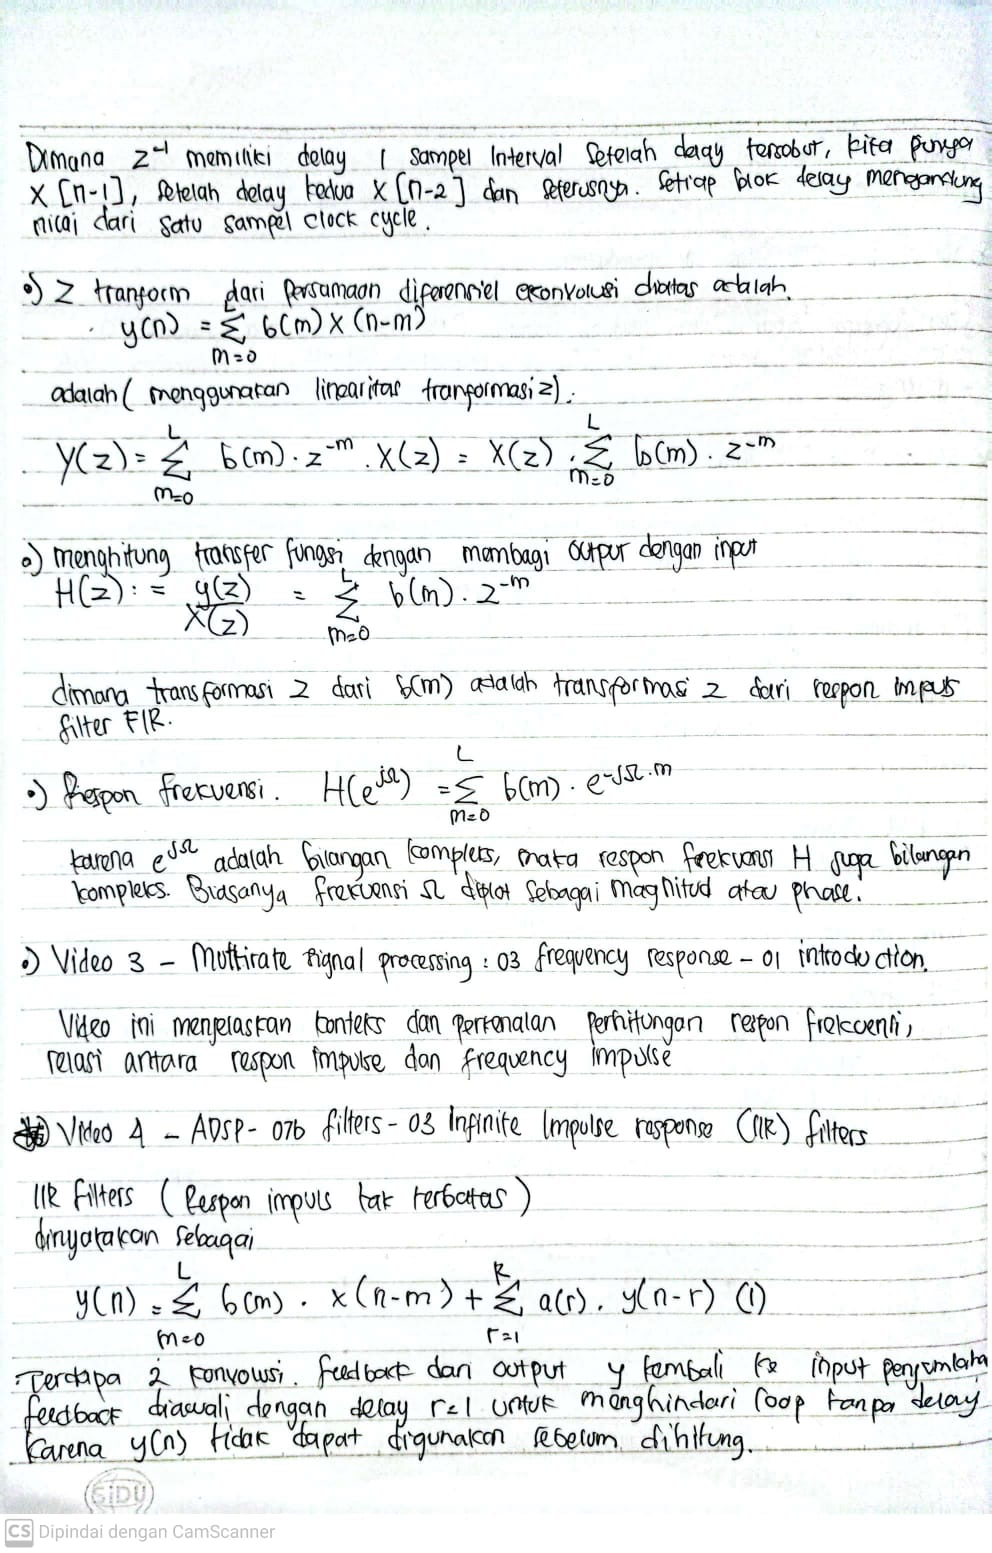 Dimana z⁻¹ memiliki delay 1 sampel Interval Setelah delay tersebut, kita punya
X [n-1], setelah delay kedua X [n-2] dan seterusnya. Setiap blok delay mengandung
nilai dari satu sampel clock cycle.
•) Z tranform dari Persamaan diferensiel ekonvolusi diatas adalah.
y(n) = Σ b(m) X (n-m)
m=0
adalah ( menggunakan linearitas tranformasi z).
L L
Y(z) = Σ b(m) . z⁻ᵐ . X(z) = X(z) . Σ b(m) . z⁻ᵐ
m=0 m=0
•) menghitung transfer fungsi dengan membagi output dengan input
L
H(z) := y(z) = Σ b(m) . z⁻ᵐ
X(z) m=0
dimana transformasi z dari b(m) adalah transformasi z dari respon impuls
filter FIR.
L
•) Respon frekuensi. H(e^jΩ) = Σ b(m) . e^-jΩ.m
m=0
karena e^jΩ adalah bilangan kompleks, maka respon frekuensi H juga bilangan
kompleks. Biasanya frekuensi Ω diplot sebagai magnitud atau phase.
•) Video 3 - Multirate signal processing : 03 frequency response - 01 introduction.
Video ini menjelaskan konteks dan perkenalan perhitungan respon frekuensi,
relasi antara respon impulse dan frequency impulse
Video 4 - ADSP - 07b filters - 03 Infinite Impulse response (IIR) filters
IIR filters ( Respon impuls tak terbatas )
dinyatakan sebagai
L R
y(n) = Σ b(m) . x (n-m) + Σ a(r) . y(n-r) (1)
m=0 r=1
Terdapa 2 konvolusi. feedback dari output y kembali ke input penjumlaha
feedback diawali dengan delay r=1 untuk menghindari loop tanpa delay
karena y(n) tidak dapat digunakan sebelum dihitung.
SIDU
CS Dipindai dengan CamScanner